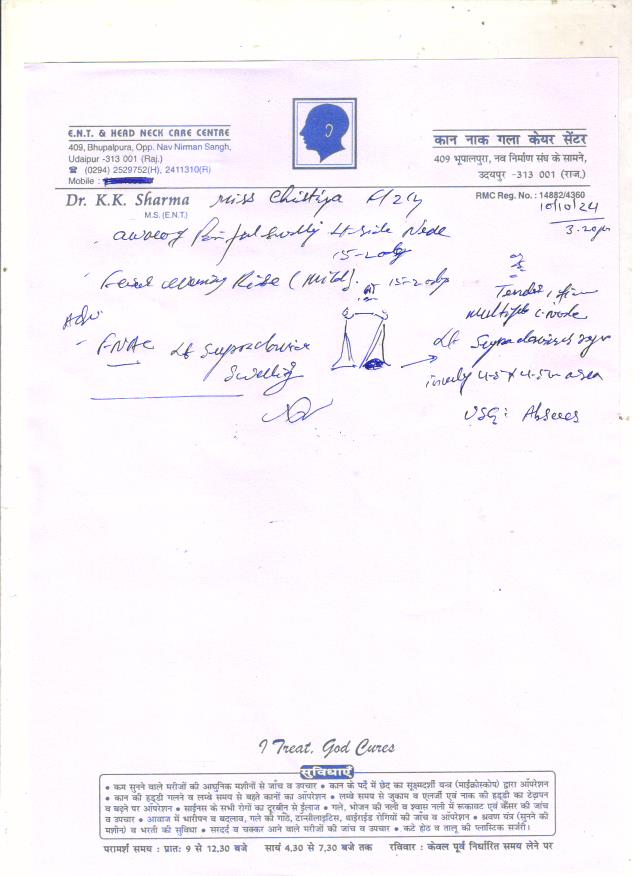 E.N.T. & HEAD NECK CARE CENTRE
409, Bhupalpura, Opp. Nav Nirman Sangh,
Udaipur -313 001 (Raj.)
☎ (0294) 2529752(H), 2411310(R)
Mobile :
कान नाक गला केयर सेंटर
409 भूपालपुरा, नव निर्माण संघ के सामने,
उदयपुर -313 001 (राज.)
Dr. K.K. Sharma
M.S. (E.N.T.)
RMC Reg. No. : 14882/4360
Miss
10/10/24
3.20pm
Painful Swelling Lt side Neck
15-20day
evening Rise (Mild). 15-20day
Adv
- FNAC Lt Supraclavicular
Swelling
Tender, firm
multiple
Lt Supraclavicular
4.5 x 4.5 area
USG: Abscess
I Treat, God Cures
सुविधाएँ
• कम सुनने वाले मरीजों की आधुनिक मशीनों से जाँच व उपचार • कान के पर्दे में छेद का सूक्ष्मदर्शी यन्त्र (माईक्रोस्कोप) द्वारा ऑपरेशन
• कान की हड्डी गलने व लम्बे समय से बहते कानों का ऑपरेशन • लम्बे समय से जुकाम व एलर्जी एवं नाक की हड्डी का टेढ़ापन
व बढ़ने पर ऑपरेशन • साईनस के सभी रोगों का दूरबीन से ईलाज • गले, भोजन की नली व श्वास नली में रूकावट एवं कैंसर की जांच
व उपचार • आवाज में भारीपन व बदलाव, गले की गांठे, टॉन्सीलाइटिस, थाईराईड रोगियों की जांच व ऑपरेशन • श्रवण यंत्र (सुनने की
मशीन) व भरती की सुविधा • सरदर्द व चक्कर आने वाले मरीजों की जांच व उपचार • कटे होठ व तालू की प्लास्टिक सर्जरी।
परामर्श समय : प्रातः 9 से 12.30 बजे सायं 4.30 से 7.30 बजे तक रविवार : केवल पूर्व निर्धारित समय लेने पर